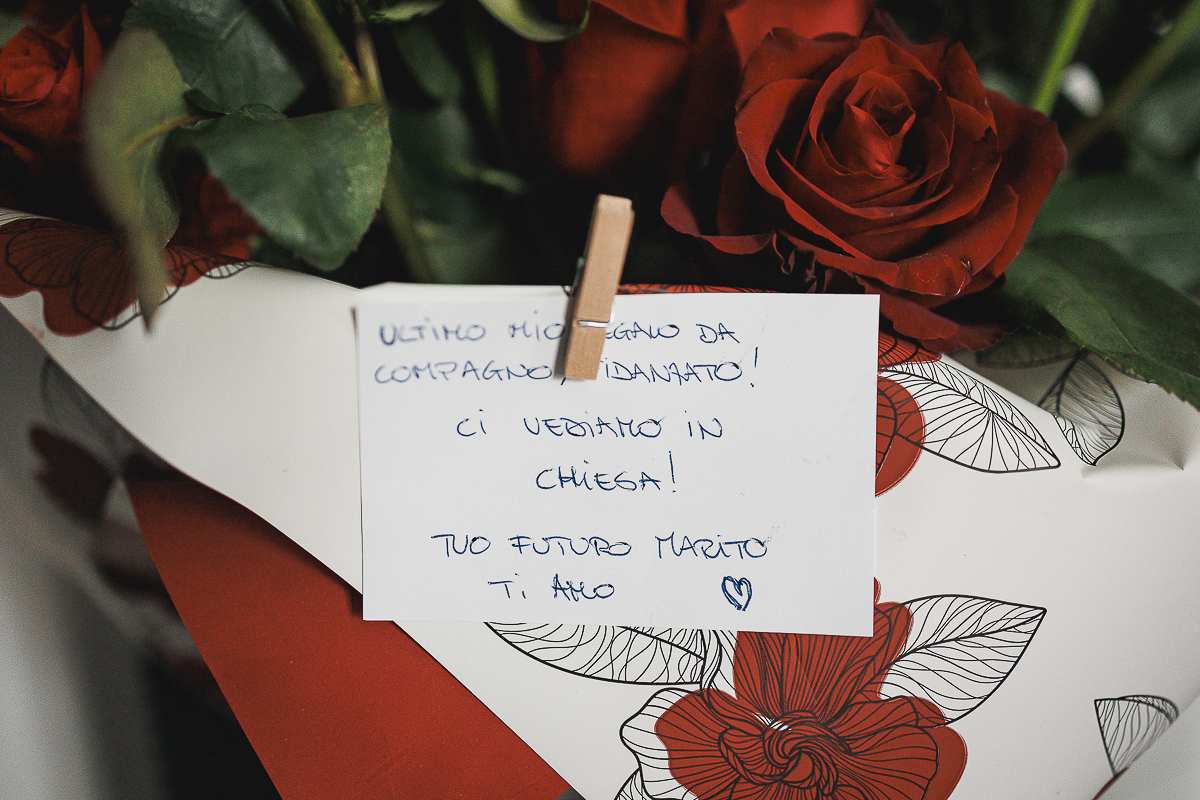 ULTIMO MIO REGALO DA
COMPAGNO / FIDANZATO!
CI VEDIAMO IN
CHIESA!
TUO FUTURO MARITO
TI AMO ♡